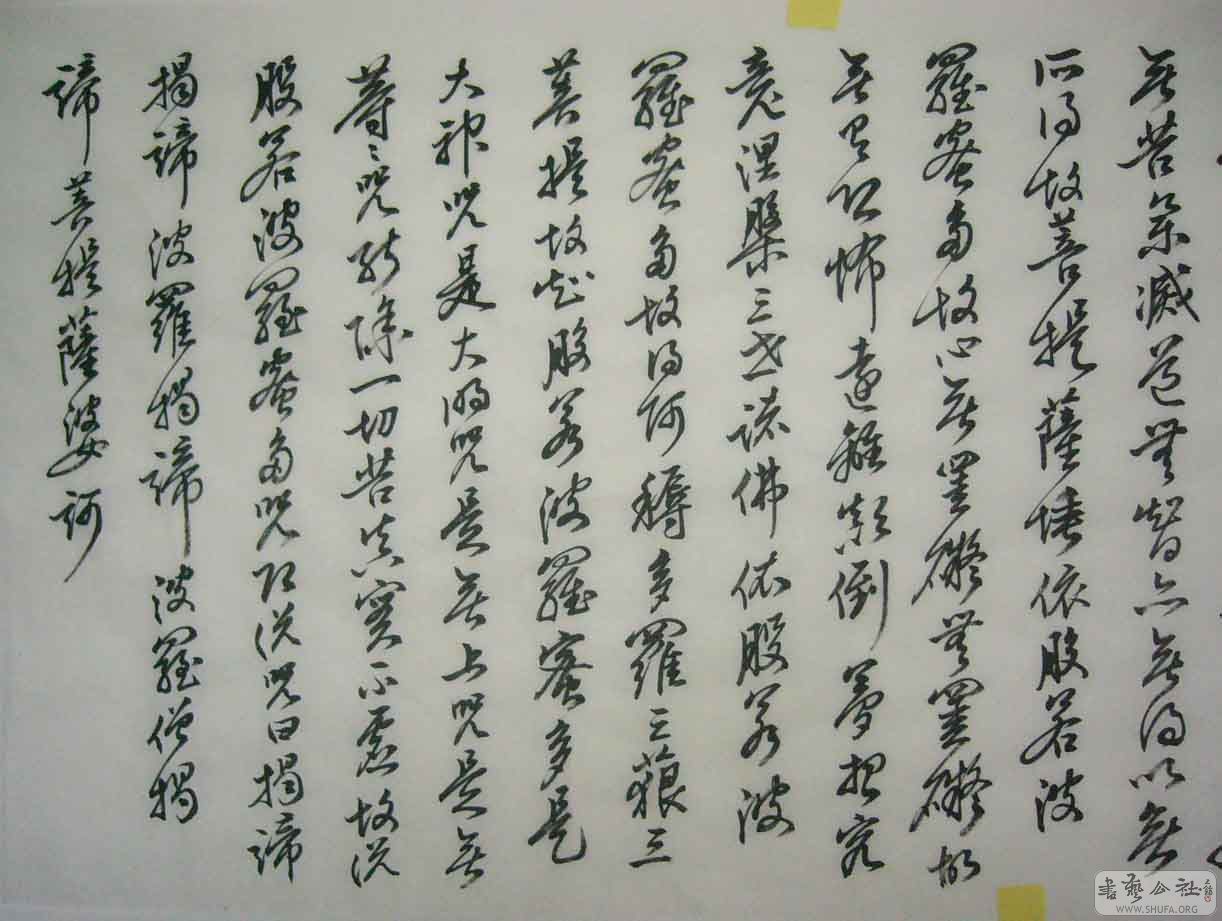 無苦集滅道無智亦無得以無
所得故菩提薩埵依般若波
羅蜜多故心無罣礙無罣礙故
無有恐怖遠離顛倒夢想究
竟涅槃三世諸佛依般若波
羅蜜多故得阿耨多羅三藐三
菩提故知般若波羅蜜多是
大神咒是大明咒是無上咒是無
等〻咒能除一切苦真實不虛故説
般若波羅蜜多咒即説咒曰揭諦
揭諦波羅揭諦波羅僧揭
諦菩提薩婆訶
書藝公社
WWW.SHUFA.ORG